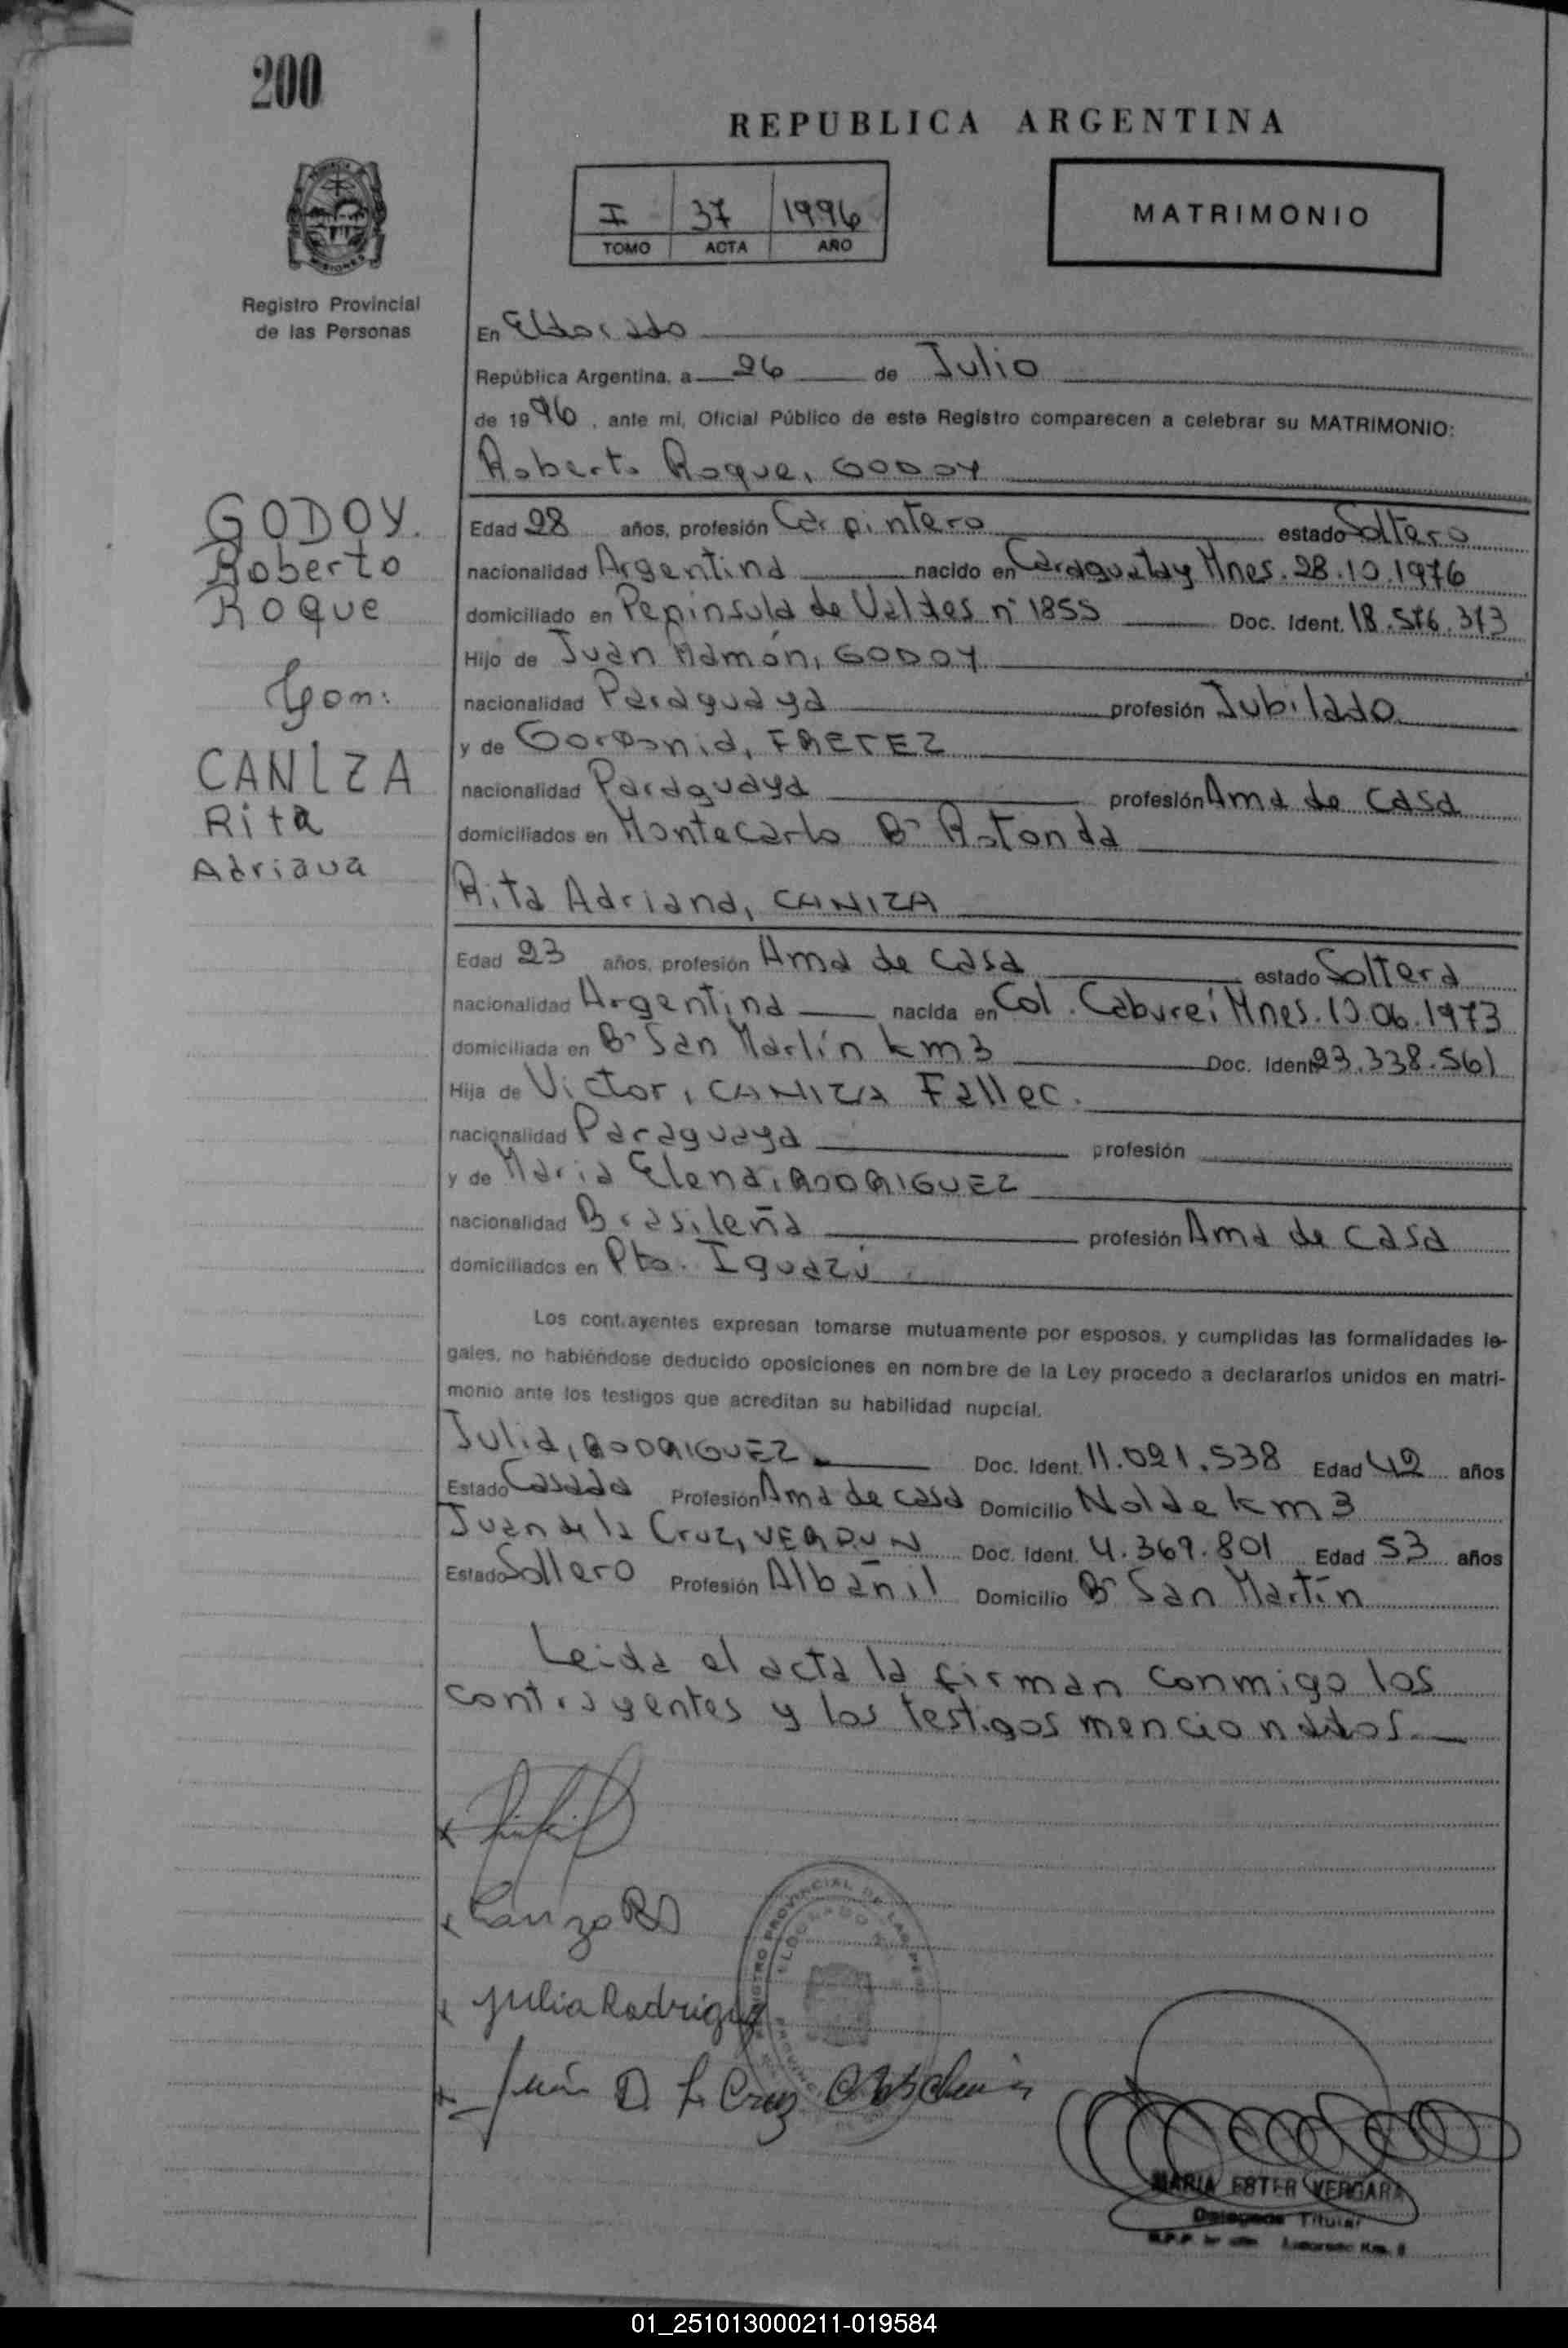 200
REPUBLICA ARGENTINA
I 37 1996
TOMO ACTA AÑO
MATRIMONIO
Registro Provincial
de las Personas
En Eldorado
República Argentina, a 26 de Julio
de 1996, ante mi, Oficial Público de este Registro comparecen a celebrar su MATRIMONIO:
Roberto Roque, GODOY
GODOY.
Roberto
Roque
Con:
CANIZA
Rita
Adriana
Edad 28 años, profesión Carpintero estado Soltero
nacionalidad Argentina nacido en Caraguatay Mnes. 28.10.1976
domiciliado en Peninsula de Valdes n° 1855 Doc. Ident. 18.576.373
Hijo de Juan Ramón, GODOY
nacionalidad Paraguaya profesión Jubilado
y de
nacionalidad Paraguaya profesión Ama de casa
domiciliados en Montecarlo B° Rotonda
Rita Adriana, CANIZA
Edad 23 años, profesión Ama de casa estado Soltera
nacionalidad Argentina nacida en Col. Cabureí Mnes. 10.06.1973
domiciliada en B° San Martín km 3 Doc. Ident. 23.338.561
Hija de Victor, CANIZA Fallec.
nacionalidad Paraguaya profesión
y de Maria Elena, RODRIGUEZ
nacionalidad Brasileña profesión Ama de casa
domiciliados en Pto. Iguazú
Los contrayentes expresan tomarse mutuamente por esposos, y cumplidas las formalidades le-
gales, no habiéndose deducido oposiciones en nombre de la Ley procedo a declararlos unidos en matri-
monio ante los testigos que acreditan su habilidad nupcial.
Julia, RODRIGUEZ Doc. Ident. 11.021.538 Edad 42 años
Estado Casada Profesión Ama de casa Domicilio Nolde km 3
Juan de la Cruz, VERDUN Doc. Ident. 4.369.801 Edad 53 años
Estado Soltero Profesión Albañil Domicilio B° San Martín
Leida el acta la firman conmigo los
contrayentes y los testigos mencionados
x
x Caniza RA
x Julia Rodriguez
x Juan D. L. Cruz
REGISTRO PROVINCIAL DE LAS PERSONAS
ELDORADO
MARIA ESTER VERGARA
Delegada Titular
01_251013000211-019584